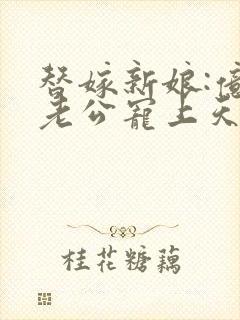 替嫁新娘:億
老公寵上天
桂花糖藕